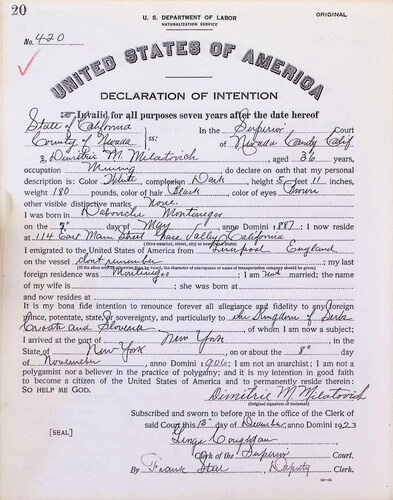 20
U. S. DEPARTMENT OF LABOR
NATURALIZATION SERVICE
ORIGINAL
No. 420
UNITED STATES OF AMERICA
DECLARATION OF INTENTION
Invalid for all purposes seven years after the date hereof
State of California
County of Nevada ss:
In the Superior Court
of Nevada County Calif
I, Dimitric M. Milatovich, aged 36 years,
occupation Mining, do declare on oath that my personal
description is: Color White, complexion Dark, height 5 feet 11 inches,
weight 180 pounds, color of hair Black, color of eyes Brown
other visible distinctive marks None.
I was born in Montenegro
on the day of May, anno Domini 1887; I now reside
at 114 East Main Street Grass Valley California
(Give number, street, city or town, and State)
I emigrated to the United States of America from Liverpool England
on the vessel don't remember; my last
(If the alien arrived otherwise than by vessel, the character of conveyance or name of transportation company should be given)
foreign residence was Montenegro; I am not married; the name
of my wife is; she was born at
and now resides at
It is my bona fide intention to renounce forever all allegiance and fidelity to any foreign
prince, potentate, state, or sovereignty, and particularly to the Kingdom of Serbs
Croats and Slovenes, of whom I am now a subject;
I arrived at the port of New York, in the
State of New York, on or about the 8" day
of November, anno Domini 1906; I am not an anarchist; I am not a
polygamist nor a believer in the practice of polygamy; and it is my intention in good faith
to become a citizen of the United States of America and to permanently reside therein:
SO HELP ME GOD.
Dimitric M. Milatovich
(Original signature of declarant)
Subscribed and sworn to before me in the office of the Clerk of
said Court this day of December, anno Domini 1923
[SEAL]
Clerk of the Superior Court.
By Frank Deputy Clerk.